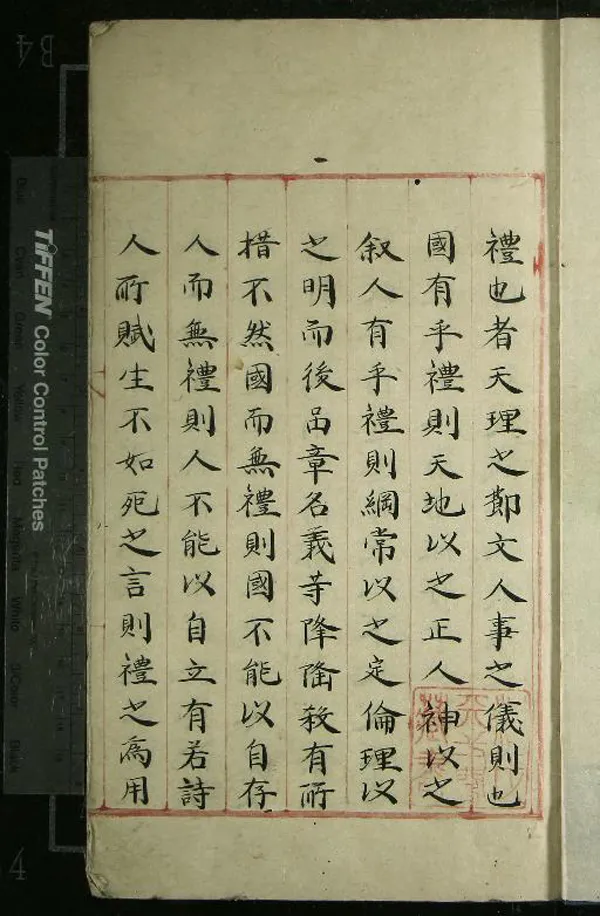 禮也者天理之節文人事之儀則也
國有乎禮則天地以之正人神以之
叙人有乎禮則綱常以之定倫理以
之明而後品章名義等降隆殺有所
措不然國而無禮則國不能以自存
人而無禮則人不能以自立有若詩
人所賦生不如死之言則禮之爲用
TIFFEN Color Control Patches
B4
4